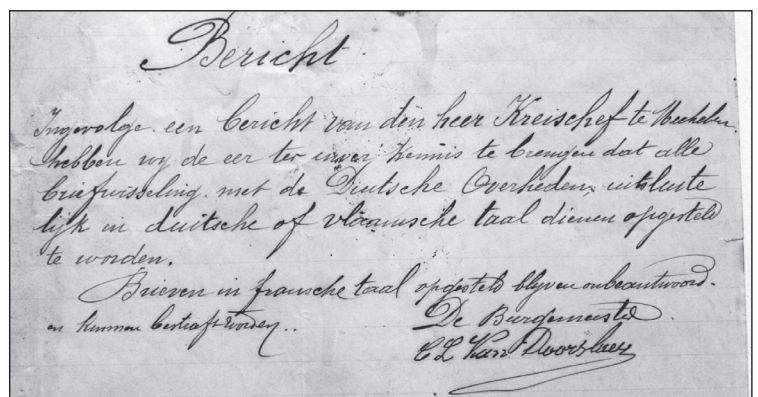 Bericht
Ingevolge een bericht van den heer Kreischef te Mechelen
hebben wy de eer ter uwer kennis te brengen dat alle
briefwisseling met de Duitsche Overheden, uitsluite
lijk in duitsche of vlaamsche taal dienen opgesteld
te worden.
Brieven in fransche taal opgesteld blyven onbeantwoord.
en kunnen bestraft worden..
De Burgemeester.
Van Doorslaer